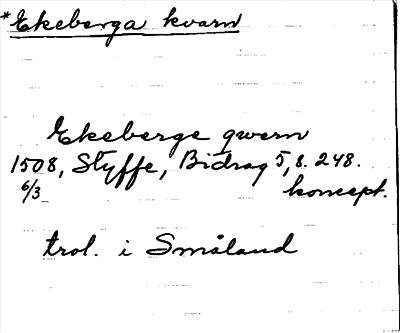 *Ekeberga kvarn
Ekeberge qwern
1508, Styffe, Bidrag 5, s. 248.
6/3 koncept.
trol. i Småland